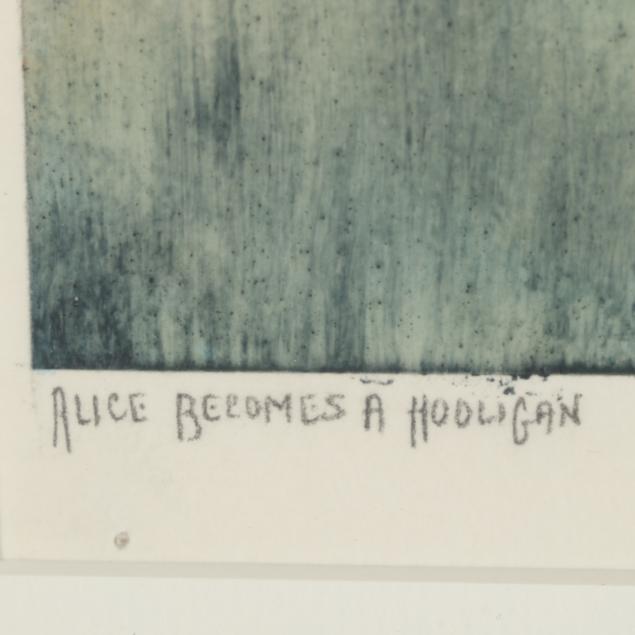 ALICE BECOMES A HOOLIGAN